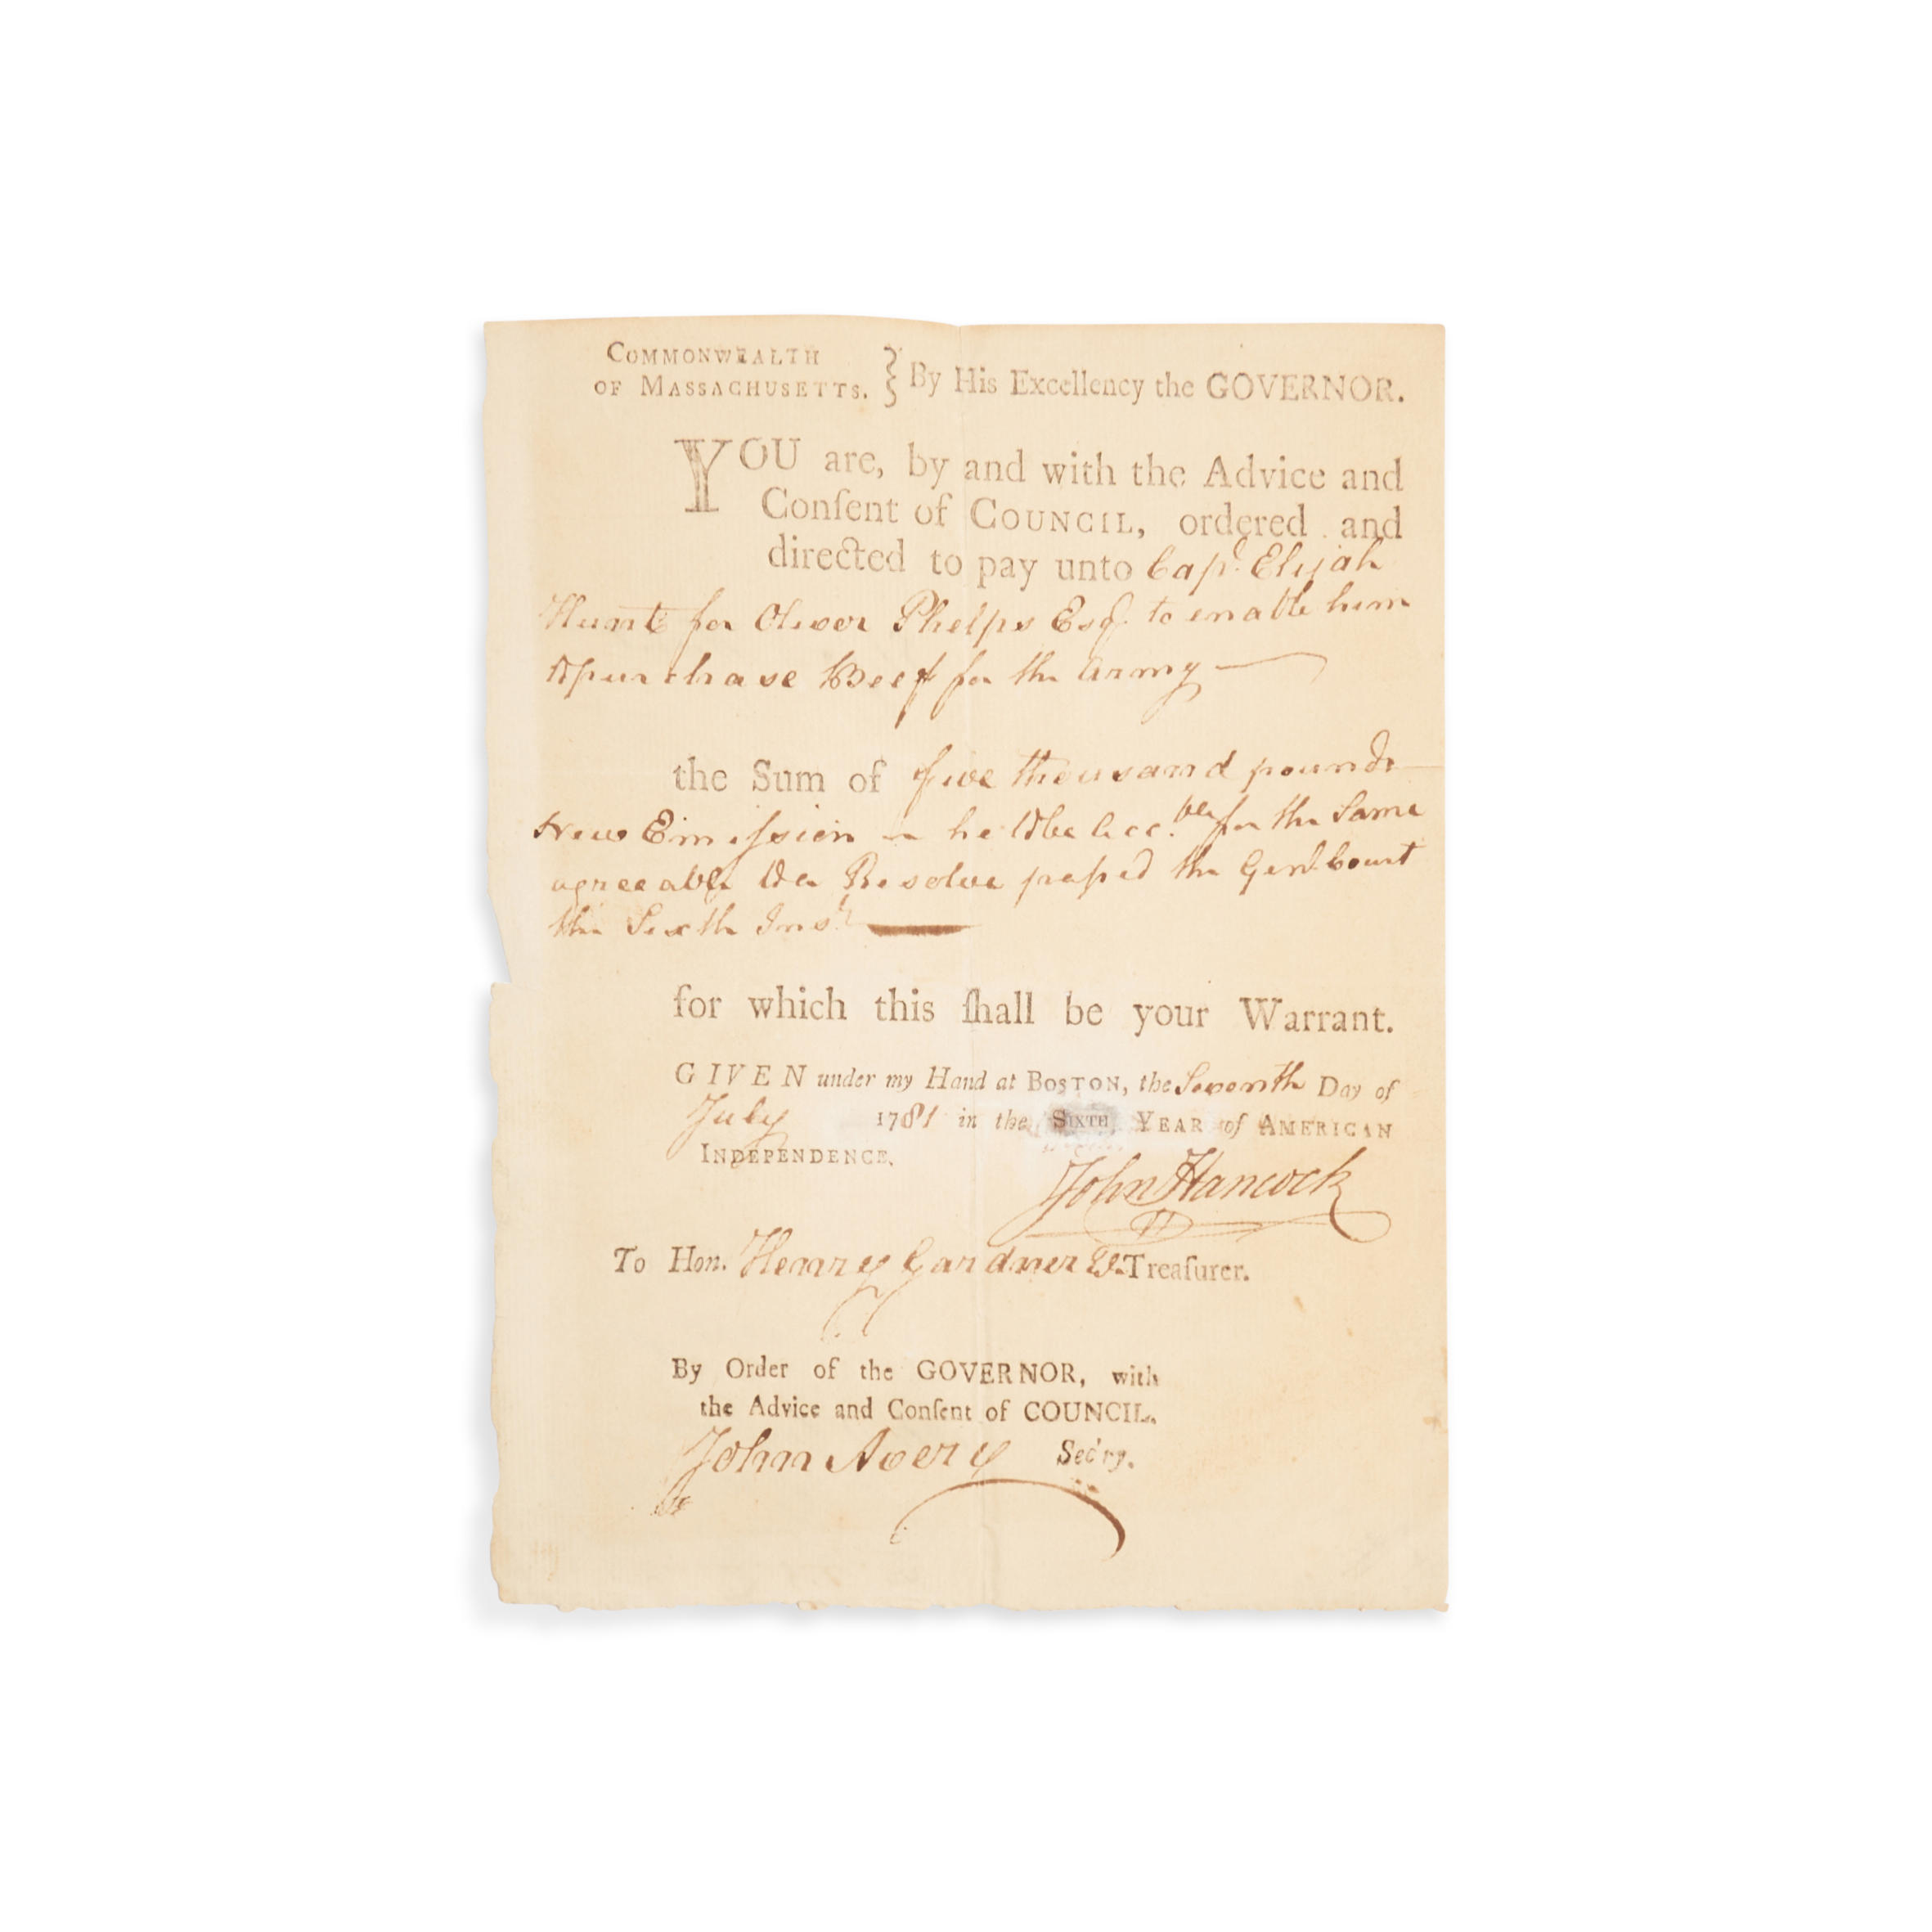 COMMONWEALTH
OF MASSACHUSETTS. } By His Excellency the GOVERNOR.
YOU are, by and with the Advice and
Conſent of COUNCIL, ordered and
directed to pay unto Capt. Elijah
Hunt for Oliver Phelps Esqr. to enable him
to purchase Beef for the Army
the Sum of five thousand pounds
New Emiſsion he to be Acc.ble for the Same
agreeable to a Resolve paſsed the Genl. Court
the Sixth Inst.
for which this ſhall be your Warrant.
GIVEN under my Hand at BOSTON, the Seventh Day of
July 1781 in the SIXTH YEAR of AMERICAN
INDEPENDENCE.
John Hancock
To Hon. Henry Gardner Treaſurer.
By Order of the GOVERNOR, with
the Advice and Conſent of COUNCIL.
John Avery Sec'ry.